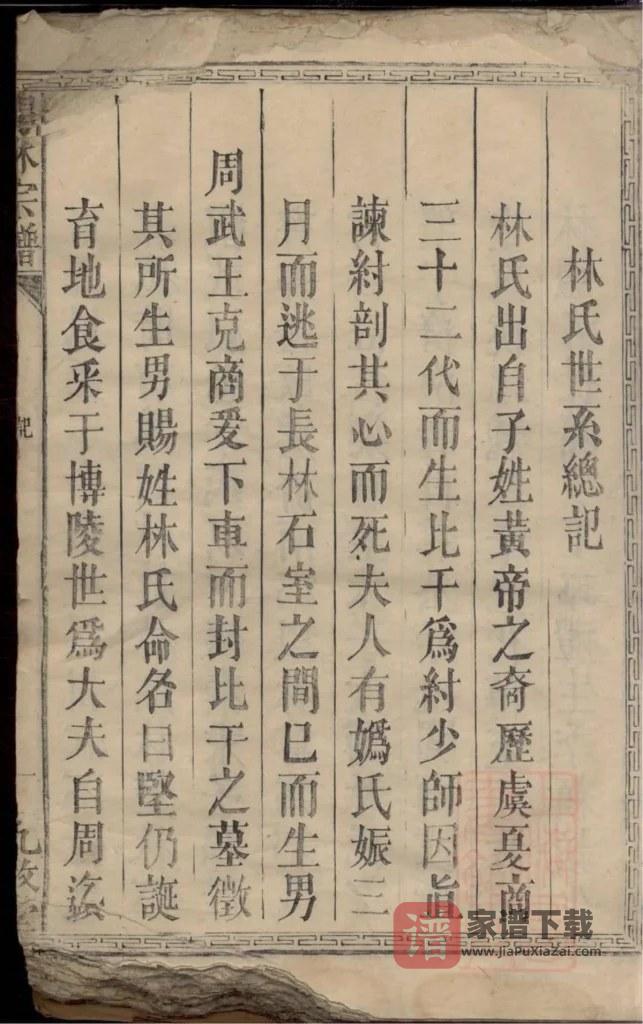 林氏世系總記
林氏出自子姓黃帝之裔歷虞夏商
三十二代而生比干爲紂少師因直
諫紂剖其心而死夫人有嬀氏娠三
月而逃于長林石室之間已而生男
周武王克商爰下車而封比干之墓徵
其所生男賜姓林氏命名曰堅仍誕
育地食采于博陵世爲大夫自周迄
林宗譜
記
一
譜
家谱下载
www.JiaPuXiaZai.com